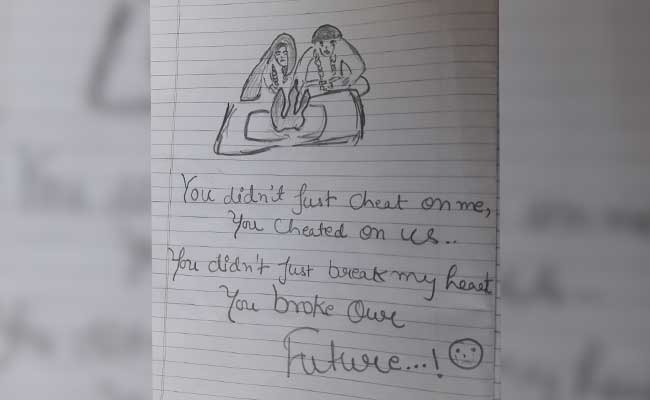 You didn't just cheat on me,
You cheated on us..
You didn't just break my heart
You broke Our
Future...!